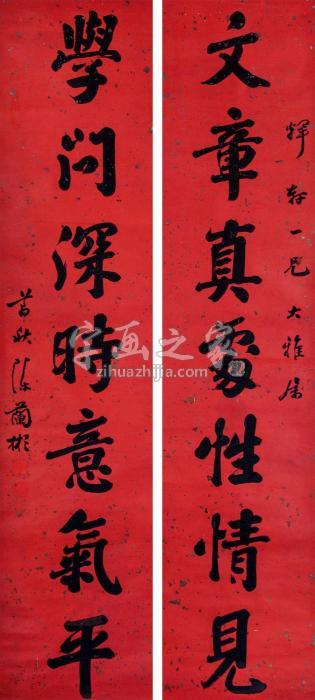 輝軒一兄大雅屬
文章真處性情見
學問深時意氣平
荔秋陳蘭彬
字画之家
zihuazhijia.com